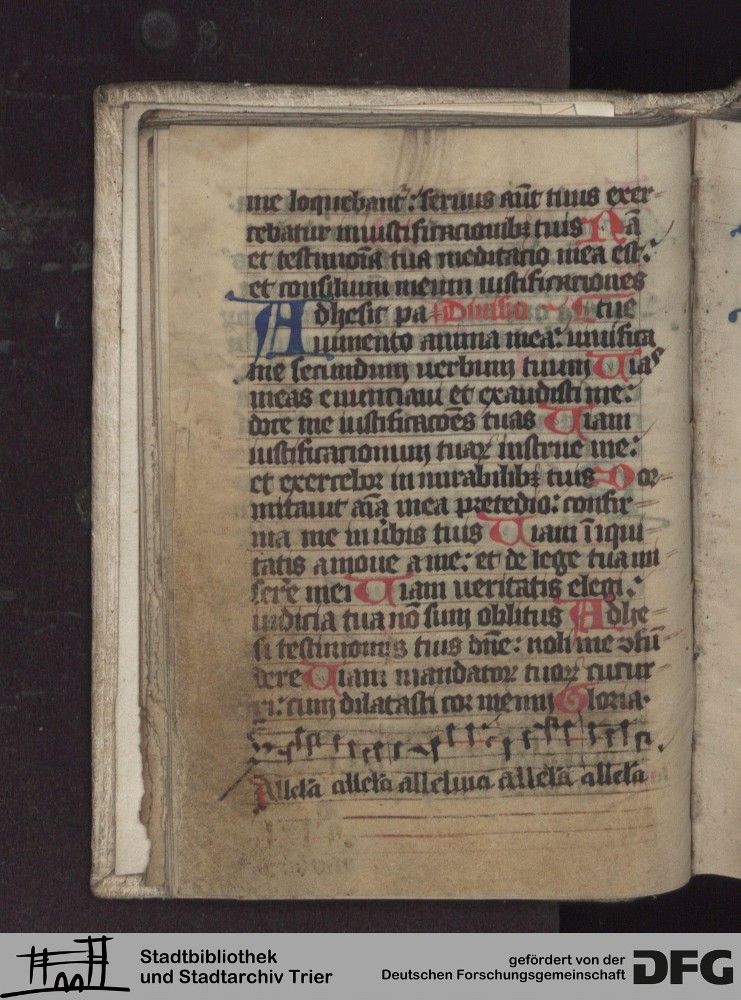 me loquebant᷑: seruus aūt tuus exer-
cebatur in iustificacionibꝫ tuis Nā
et testimoīa tua meditacio mea est:
et consilium meum iustificaciones
Adhesit pa Diuisio tue
uimento anima mea: uiuifica
me secundum uerbum tuum Uias
meas enunciaui et exaudisti me:
doce me iustificacōes tuas Uiam
iustificacionum tuaꝝ instrue me:
et exercebor in mirabilibꝫ tuis Dor-
mitauit aīa mea pre tedio: confir-
ma me in ūbis tuis Uiam īiqui-
tatis amoue a me: et de lege tua mi-
serere mei Uiam ueritatis elegi:
iudicia tua nō sum oblitus Adhe-
si testimoniis tuis dn̄e: noli me ↄfū-
dere Uiam mandatoꝝ tuoꝝ cucur-
ri: cum dilatasti cor meum Gloria.
Allel̄a allel̄a alleluia allel̄a allel̄a
Stadtbibliothek
und Stadtarchiv Trier
gefördert von der
Deutschen Forschungsgemeinschaft
DFG